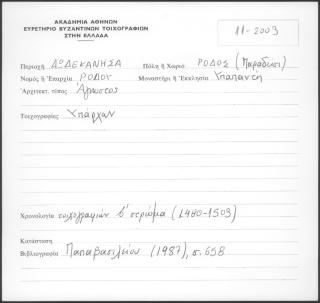 ΑΚΑΔΗΜΙΑ ΑΘΗΝΩΝ
ΕΥΡΕΤΗΡΙΟ ΒΥΖΑΝΤΙΝΩΝ ΤΟΙΧΟΓΡΑΦΙΩΝ
ΣΤΗΝ ΕΛΛΑΔΑ
11-2003
Περιοχή ΔΩΔΕΚΑΝΗΣΑ Πόλη ή Χωριό ΡΟΔΟΣ (Παραδείσι)
Νομός ή Ἐπαρχία ΡΟΔΟΥ Μοναστήρι ή Ἐκκλησία Υπαπαντή
Ἀρχιτεκτ. τύπος Ἄγνωστος
Τοιχογραφίες Ὑπάρχουν
Χρονολογία τοιχογραφιών β' στρώμα (1480-1503)
Κατάσταση
Βιβλιογραφία Παπαβασιλείου (1987), σ. 658